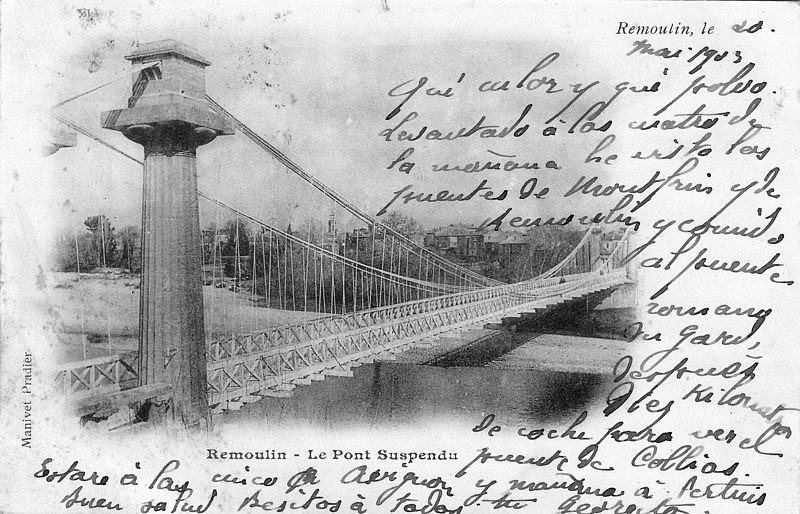 Remoulin, le 20.
Mai 1903
Qué calor y qué polvo.
Levantado à las cuatro de
la mañana he visto los
puentes de Montfrin y de
Remoulin y comido
al puente
romano
du Gard,
después
diez Kilometros
de coche para ver el
puente de Collias.
Estare à las cinco en Avignon y mañana à Pertuis
Buen salud Besitos à todos. tu
Manivet Pradier
Remoulin - Le Pont Suspendu